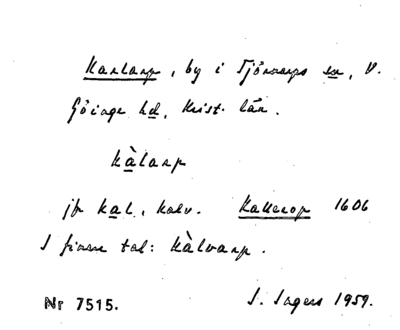 Karlarp, by i Tjörnarps sn, V.
Göinge hd, Krist. län.
kàlarp
jfr kal, kalv. Kallerop 1606
I finare tal: kàlvarp.
Nr 7515. I. Ingers 1959.